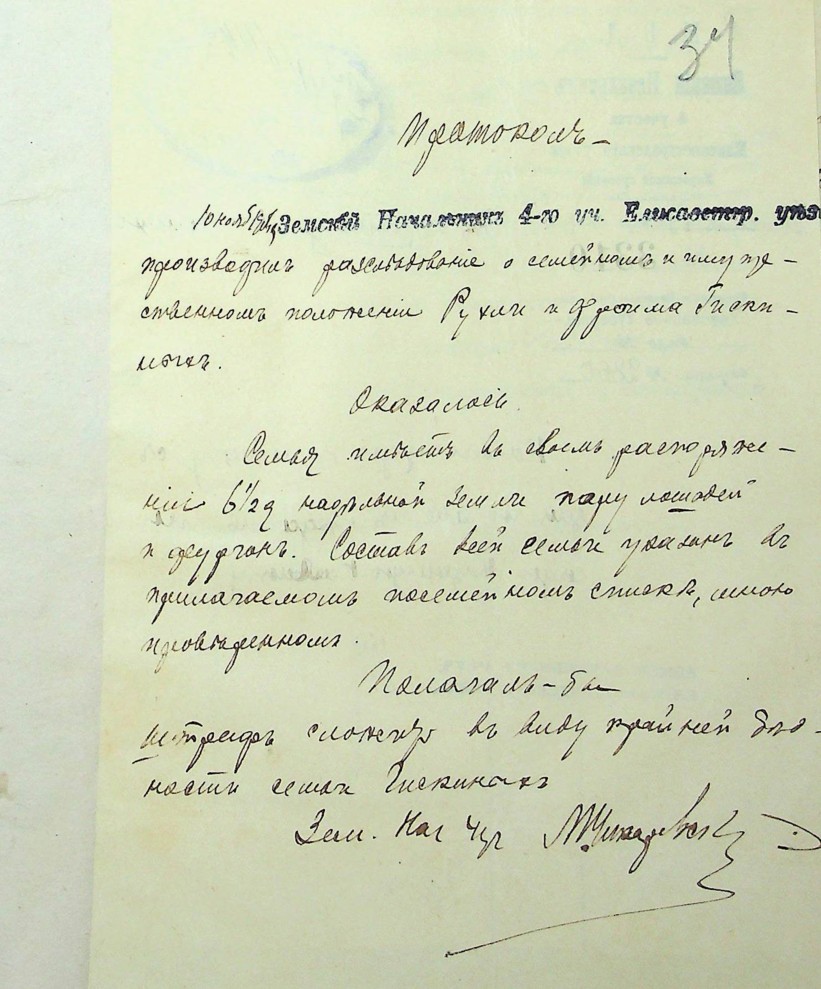 34
Протоколъ –
Земскій Начальникъ 4-го уч. Елисаветгр. уѣз
производилъ разслѣдованіе о семейномъ и имуще-
ственномъ положеніи Рухли и Фроима Гиски-
ныхъ.
Оказалось
Семья имѣетъ въ своемъ распоряже-
ніи 6 1/2 д надѣльной земли пару лошадей
и фургонъ. Составъ всей семьи указанъ въ
прилагаемомъ посемейномъ спискѣ, мною
провѣренномъ.
Полагалъ-бы
штрафъ сложить въ виду крайней бѣд-
ности семьи Гискиныхъ
Зем. Нач 4 уч